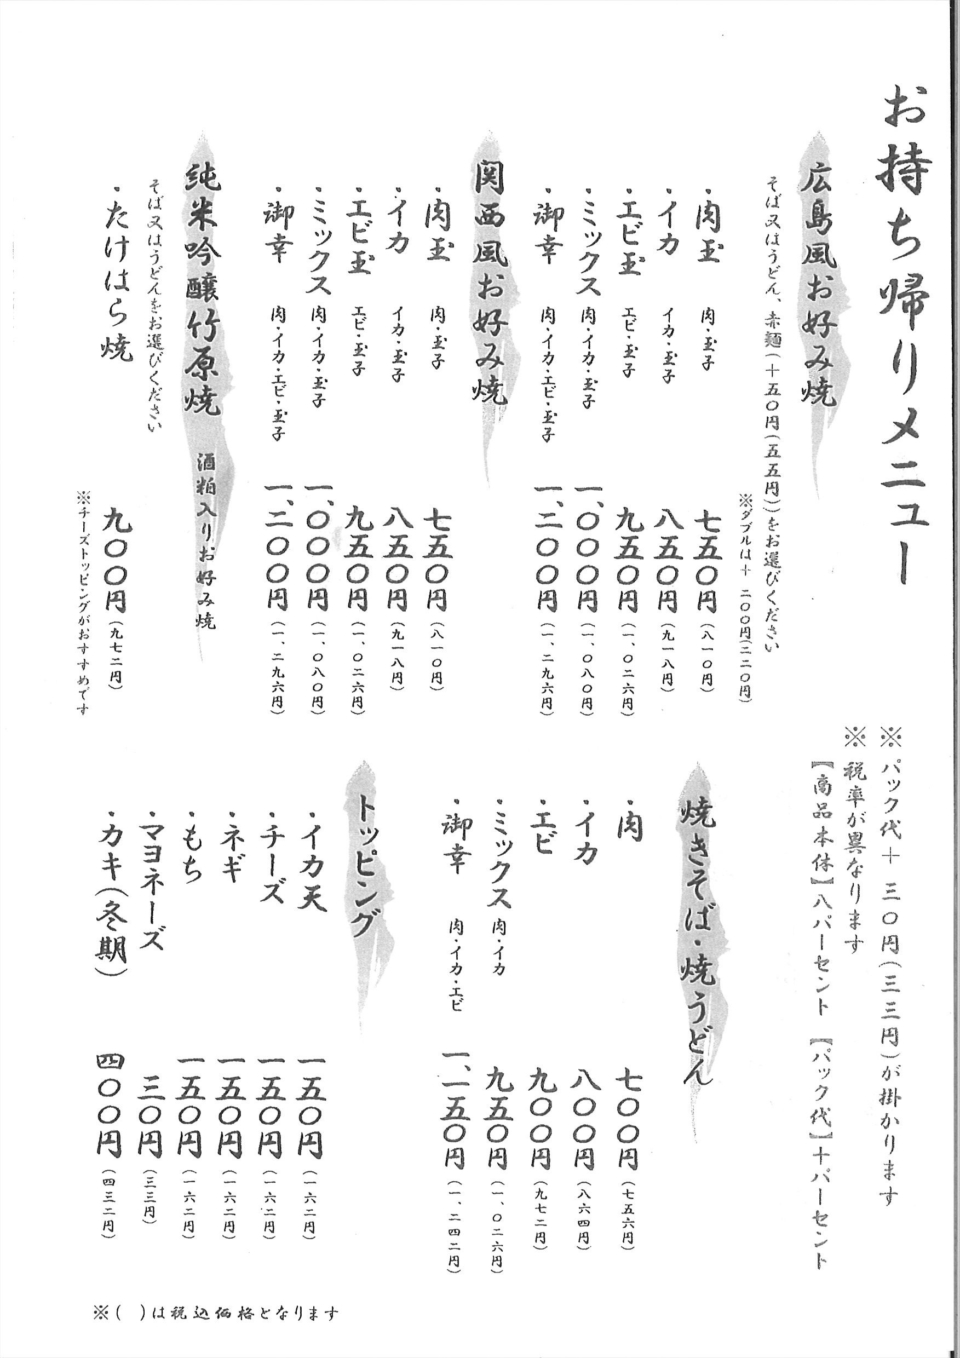 お持ち帰りメニュー
※パック代+三〇円(三三円)が掛かります
※税率が異なります
【商品本体】八パーセント【パック代】十パーセント
広島風お好み焼
そば又はうどん、赤麺(+五〇円(五五円))をお選びください
※ダブルは+二〇〇円(二二〇円)
・肉玉 肉・玉子 七五〇円(八一〇円)
・イカ イカ・玉子 八五〇円(九一八円)
・エビ玉 エビ・玉子 九五〇円(一、〇二六円)
・ミックス 肉・イカ・玉子 一、〇〇〇円(一、〇八〇円)
・御幸 肉・イカ・エビ・玉子 一、二〇〇円(一、二九六円)
関西風お好み焼
・肉玉 肉・玉子 七五〇円(八一〇円)
・イカ イカ・玉子 八五〇円(九一八円)
・エビ玉 エビ・玉子 九五〇円(一、〇二六円)
・ミックス 肉・イカ・玉子 一、〇〇〇円(一、〇八〇円)
・御幸 肉・イカ・エビ・玉子 一、二〇〇円(一、二九六円)
純米吟醸竹原焼 酒粕入りお好み焼
そば又はうどんをお選びください
・たけはら焼 九〇〇円(九七二円)
※チーズトッピングがおすすめです
焼きそば・焼うどん
・肉 七〇〇円(七五六円)
・イカ 八〇〇円(八六四円)
・エビ 九〇〇円(九七二円)
・ミックス 肉・イカ 九五〇円(一、〇二六円)
・御幸 肉・イカ・エビ 一、一五〇円(一、二四二円)
トッピング
・イカ天 一五〇円(一六二円)
・チーズ 一五〇円(一六二円)
・ネギ 一五〇円(一六二円)
・もち 一五〇円(一六二円)
・マヨネーズ 三〇円(三三円)
・カキ(冬期) 四〇〇円(四三二円)
※( )は税込価格となります